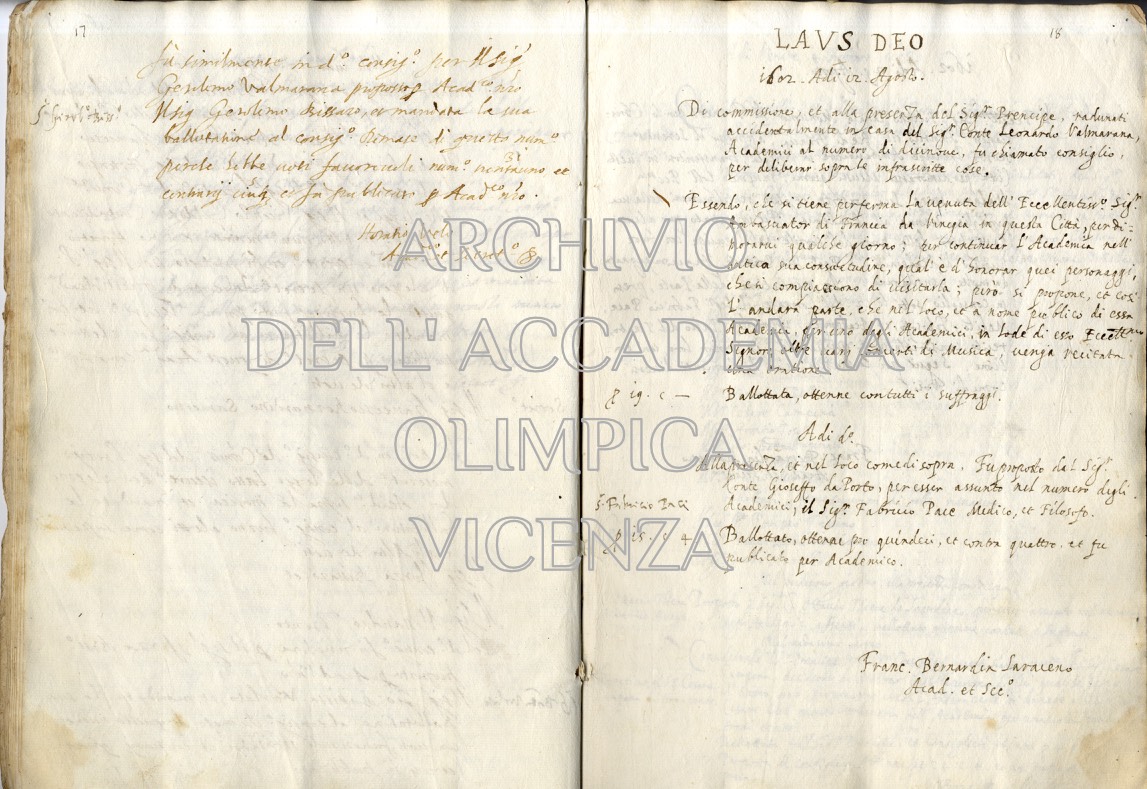 17
Fù similmente in d.º consig.º per Il Sig.
Gerolimo Valmarana proposto p Acad.co nro
S.
Il Sig. Gerolimo et mandata la sua
ballotatione al consig.º Rimase di questo num.º
perche sette uoti fauoreuoli num.º trentauno et
31
contrarij cinq; et fu publicato p Acad.co nro.
Horatio Velo
et Secret.º
18
LAVS DEO
1602. Adi 12 Agosto.
Di commissione, et alla presenza del Sig.r Prencipe, radunati
accidentalmente in casa del Sig.r Conte Leonardo Valmarana,
Academici al numero di dicinoue, fu chiamato consiglio,
per deliberar sopra le infrascritte cose.
Essendo, che si tiene per ferma la uenuta dell'Eccellentiss.º Sig.r
Ambasciator di Francia da Vinegia in questa Città, per di-
morarui qualche giorno; per continuar l'Academia nell'
antica sua consuetudine, qual'è d'honorar quei personaggi,
che si compiacciono di uisitarla; però si propone, et così
l'andarà parte, che nel loco, et à nome publico di essa
Academia, per uno degli Academici, in lode di esso Eccellen.mo
Signor, oltre uarij concerti di Musica, uenga recitata
una oratione.
p 19. c —
Ballottata, ottenne con tutti i suffraggi.
Adi d.º
Alla presenza, et nel loco come di sopra. Fu proposto dal Sig.r
Conte Gioseffo da Porto, per esser assunto nel numero degli
S. Fabricio Pace
Academici, il Sig.r Fabricio Pace Medico, et Filosofo.
p 15. c 4
Ballottato, ottenne pro quindeci, et contra quattro. et fu
publicato per Academico.
Franc. Bernardin Saraceno
Acad. et Sec.º
ARCHIVIO
DELL'ACCADEMIA
OLIMPICA
VICENZA